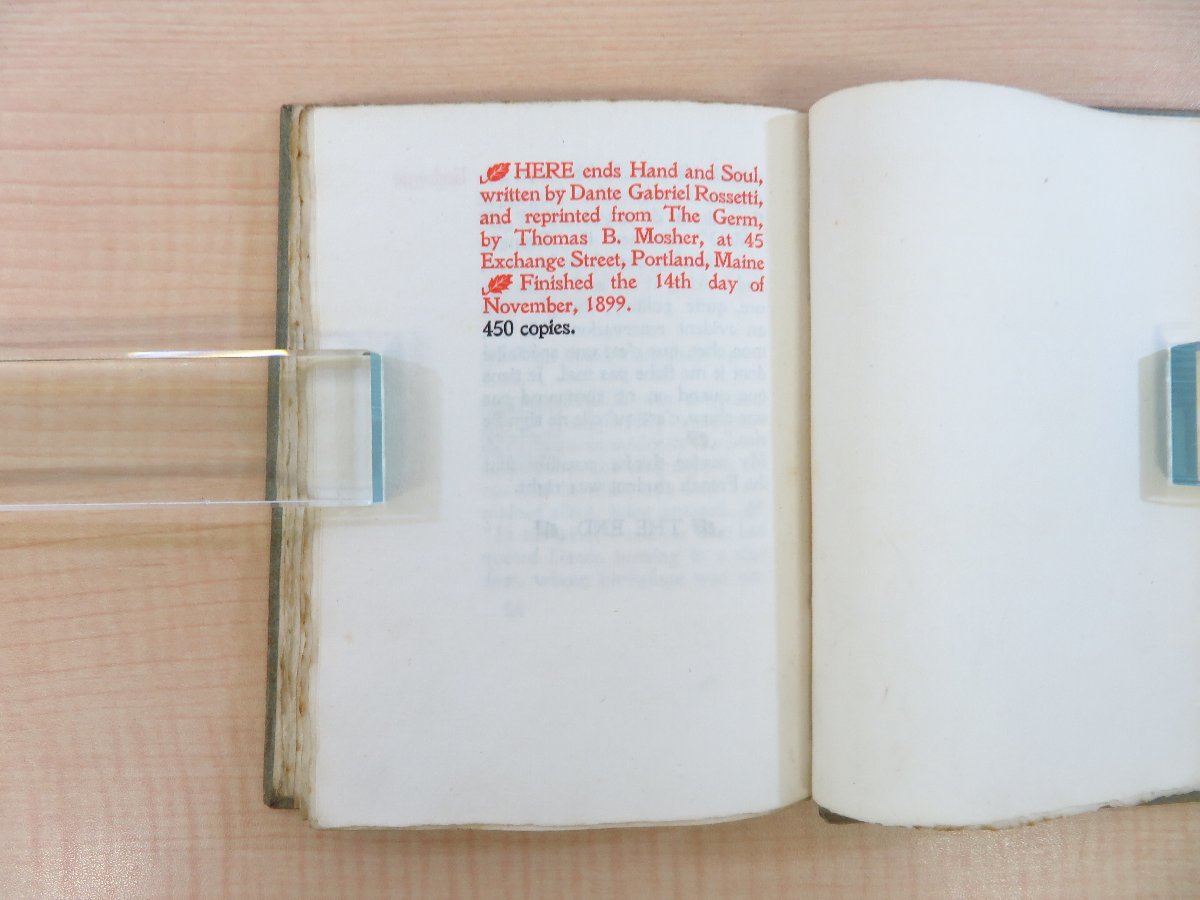 HERE ends Hand and Soul,
written by Dante Gabriel Rossetti,
and reprinted from The Germ,
by Thomas B. Mosher, at 45
Exchange Street, Portland, Maine
Finished the 14th day of
November, 1899.
450 copies.